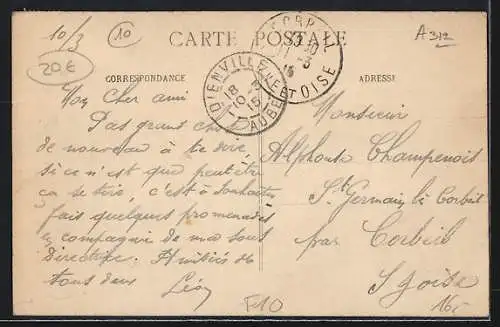 10/3
10
20€
A312
CARTE POSTALE
CORRESPONDANCE
ADRESSE
CORBEIL
ET OISE
DIENVILLE
18
10
15
AUBE
Mon cher ami
Pas grand chose
de nouveau à te dire,
si ce n'est que peut être
ça se tire, c'est à souhaiter
fais quelques promenades
en compagnie de ma sous
Directrice. Amitiés de
tous deux Léon
Monsieur
Alphonse Champenois
St Germain lès Corbeil
par Corbeil
S & Oise
F10
16